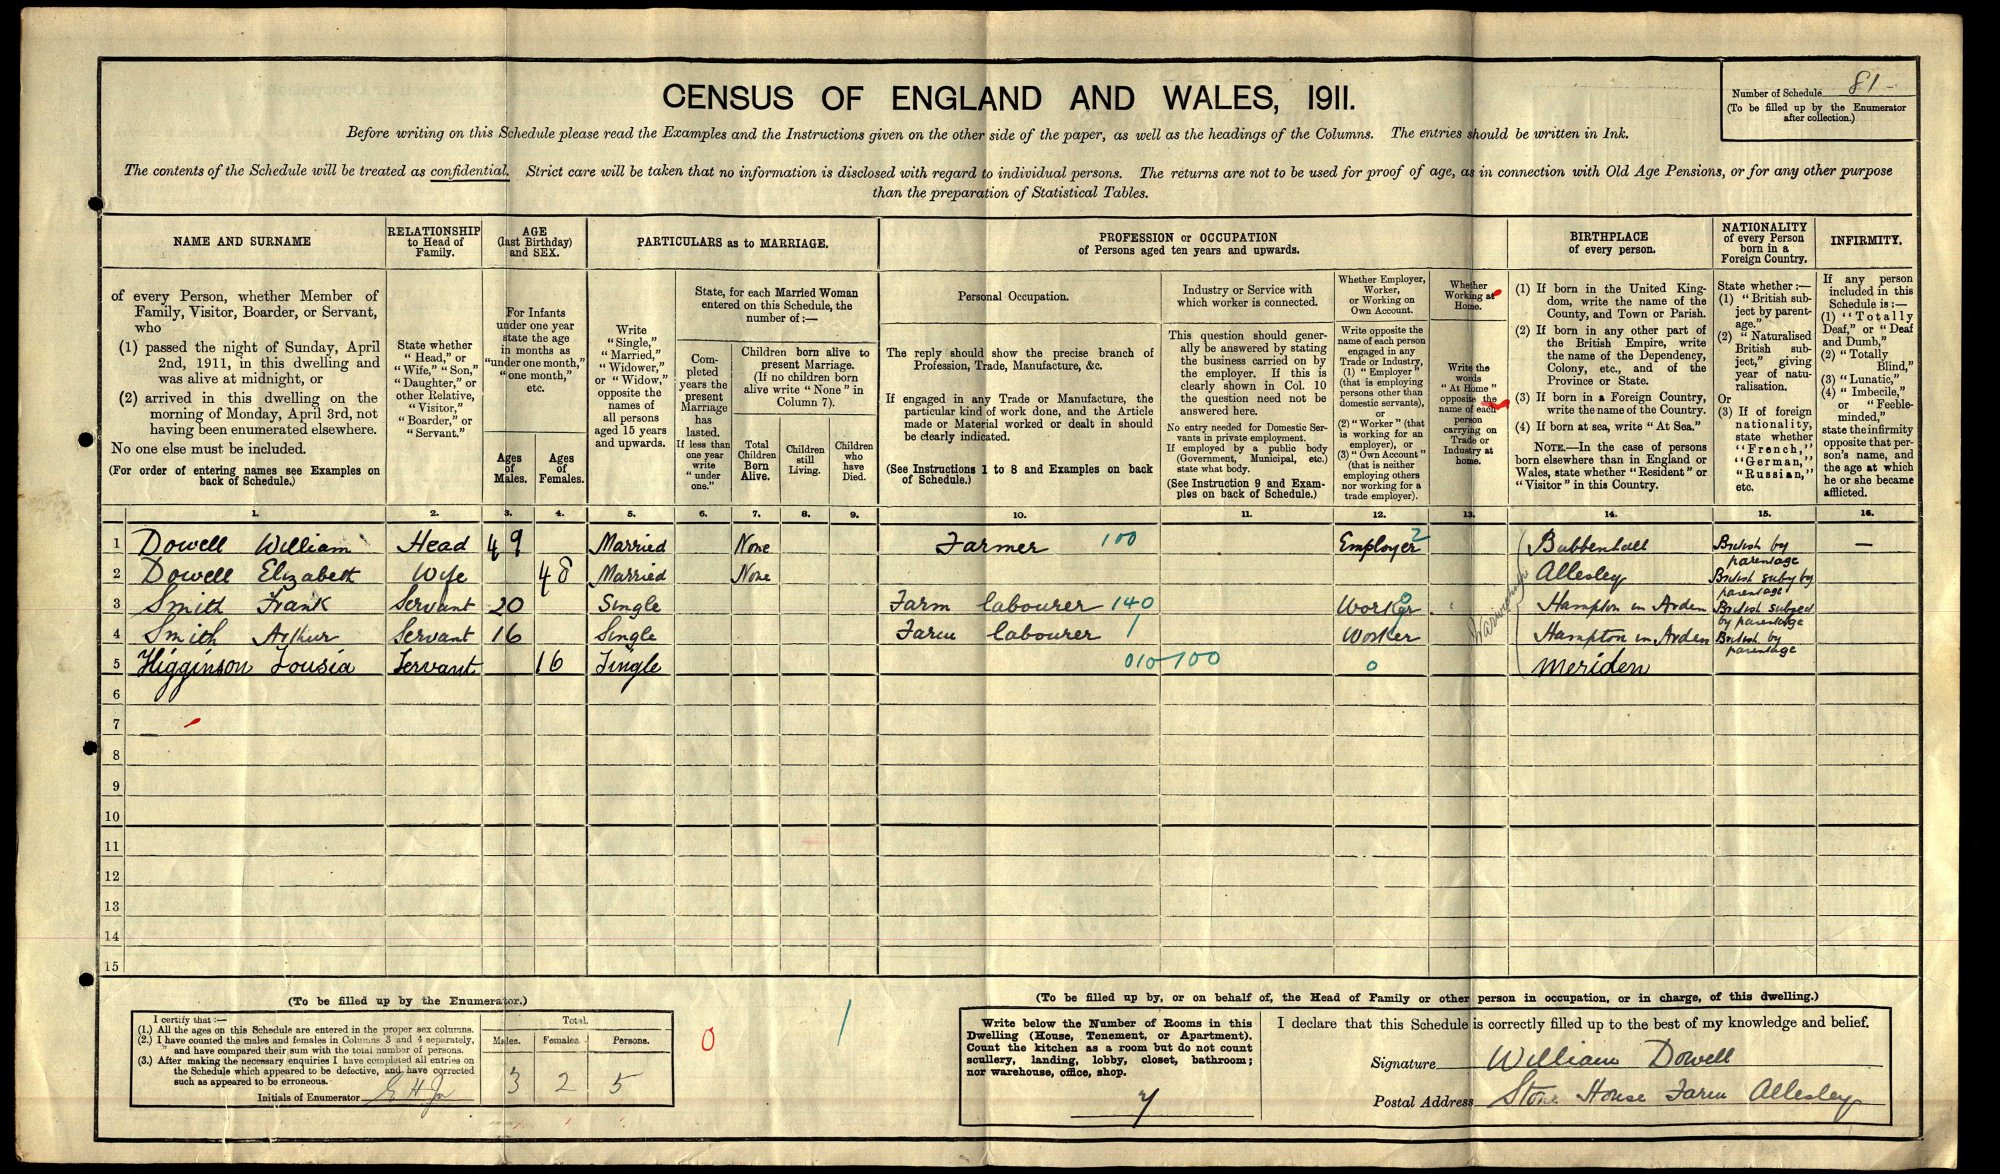 CENSUS OF ENGLAND AND WALES, 1911.
Number of Schedule 81
(To be filled up by the Enumerator
after collection.)
Before writing on this Schedule please read the Examples and the Instructions given on the other side of the paper, as well as the headings of the Columns. The entries should be written in Ink.
The contents of the Schedule will be treated as confidential. Strict care will be taken that no information is disclosed with regard to individual persons. The returns are not to be used for proof of age, as in connection with Old Age Pensions, or for any other purpose
than the preparation of Statistical Tables.
NAME AND SURNAME
of every Person, whether Member of
Family, Visitor, Boarder, or Servant,
who
(1) passed the night of Sunday, April
2nd, 1911, in this dwelling and
was alive at midnight, or
(2) arrived in this dwelling on the
morning of Monday, April 3rd, not
having been enumerated elsewhere.
No one else must be included.
(For order of entering names see Examples on
back of Schedule.)
RELATIONSHIP
to Head of
Family.
State whether
"Head," or
"Wife," "Son,"
"Daughter," or
other Relative,
"Visitor,"
"Boarder," or
"Servant."
AGE
(last Birthday)
and SEX.
For Infants
under one year
state the age
in months as
"under one month,"
"one month,"
etc.
Ages
of
Males.
Ages
of
Females.
PARTICULARS as to MARRIAGE.
Write
"Single,"
"Married,"
"Widower,"
or "Widow,"
opposite the
names of
all persons
aged 15 years
and upwards.
State, for each Married Woman
entered on this Schedule, the
number of:—
Com-
pleted
years the
present
Marriage
has
lasted.
If less than
one year
write
"under
one."
Children born alive to
present Marriage.
(If no children born
alive write "None" in
Column 7).
Total
Children
Born
Alive.
Children
still
Living.
Children
who
have
Died.
PROFESSION or OCCUPATION
of Persons aged ten years and upwards.
Personal Occupation.
The reply should show the precise branch of
Profession, Trade, Manufacture, &c.
If engaged in any Trade or Manufacture, the
particular kind of work done, and the Article
made or Material worked or dealt in should
be clearly indicated.
(See Instructions 1 to 8 and Examples on back
of Schedule.)
Industry or Service with
which worker is connected.
This question should gener-
ally be answered by stating
the business carried on by
the employer. If this is
clearly shown in Col. 10
the question need not be
answered here.
No entry needed for Domestic Ser-
vants in private employment.
If employed by a public body
(Government, Municipal, etc.)
state what body.
(See Instruction 9 and Exam-
ples on back of Schedule.)
Whether Employer,
Worker,
or Working on
Own Account.
Write opposite the
name of each person
engaged in any
Trade or Industry,
(1) "Employer"
(that is employing
persons other than
domestic servants),
or
(2) "Worker" (that
is working for an
employer), or
(3) "Own Account"
(that is neither
employing others
nor working for a
trade employer).
Whether
Working at
Home.
Write the
words
"At Home"
opposite the
name of each
person
carrying on
Trade or
Industry at
home.
BIRTHPLACE
of every person.
(1) If born in the United King-
dom, write the name of the
County, and Town or Parish.
(2) If born in any other part of
the British Empire, write
the name of the Dependency,
Colony, etc., and of the
Province or State.
(3) If born in a Foreign Country,
write the name of the Country.
(4) If born at sea, write "At Sea."
NOTE.—In the case of persons
born elsewhere than in England or
Wales, state whether "Resident" or
"Visitor" in this Country.
NATIONALITY
of every Person
born in a
Foreign Country.
State whether:—
(1) "British sub-
ject by parent-
age."
(2) "Naturalised
British sub-
ject," giving
year of natu-
ralisation.
Or
(3) If of foreign
nationality,
state whether
"French,"
"German,"
"Russian,"
etc.
INFIRMITY.
If any person
included in this
Schedule is:—
(1) "Totally
Deaf," or "Deaf
and Dumb,"
(2) "Totally
Blind,"
(3) "Lunatic,"
(4) "Imbecile,"
or "Feeble-
minded,"
state the infirmity
opposite that per-
son's name, and
the age at which
he or she became
afflicted.
1. 2. 3. 4. 5. 6. 7. 8. 9. 10. 11. 12. 13. 14. 15. 16.
1 Dowell William Head 49 Married None Farmer 100 Employer 2 Bubbenhall British by parentage —
2 Dowell Elizabeth Wife 48 Married None Allesley British suby by parentage
3 Smith Frank Servant 20 Single Farm labourer 140 Worker 0 Hampton in Arden British subject by parentage
4 Smith Arthur Servant 16 Single Farm labourer 1 Worker Hampton in Arden British by parentage
5 Higginson Lousia Servant 16 Single 010 100 0 Meriden
Warwickshire
6
7
8
9
10
11
12
13
14
15
(To be filled up by the Enumerator.)
I certify that:—
(1.) All the ages on this Schedule are entered in the proper sex columns.
(2.) I have counted the males and females in Columns 3 and 4 separately,
and have compared their sum with the total number of persons.
(3.) After making the necessary enquiries I have completed all entries on
the Schedule which appeared to be defective, and have corrected
such as appeared to be erroneous.
Initials of Enumerator
Total.
Males. Females. Persons.
3 2 5
0
1
(To be filled up by, or on behalf of, the Head of Family or other person in occupation, or in charge, of this dwelling.)
Write below the Number of Rooms in this
Dwelling (House, Tenement, or Apartment).
Count the kitchen as a room but do not count
scullery, landing, lobby, closet, bathroom;
nor warehouse, office, shop.
7
I declare that this Schedule is correctly filled up to the best of my knowledge and belief.
Signature William Dowell
Postal Address Stone House Farm Allesley